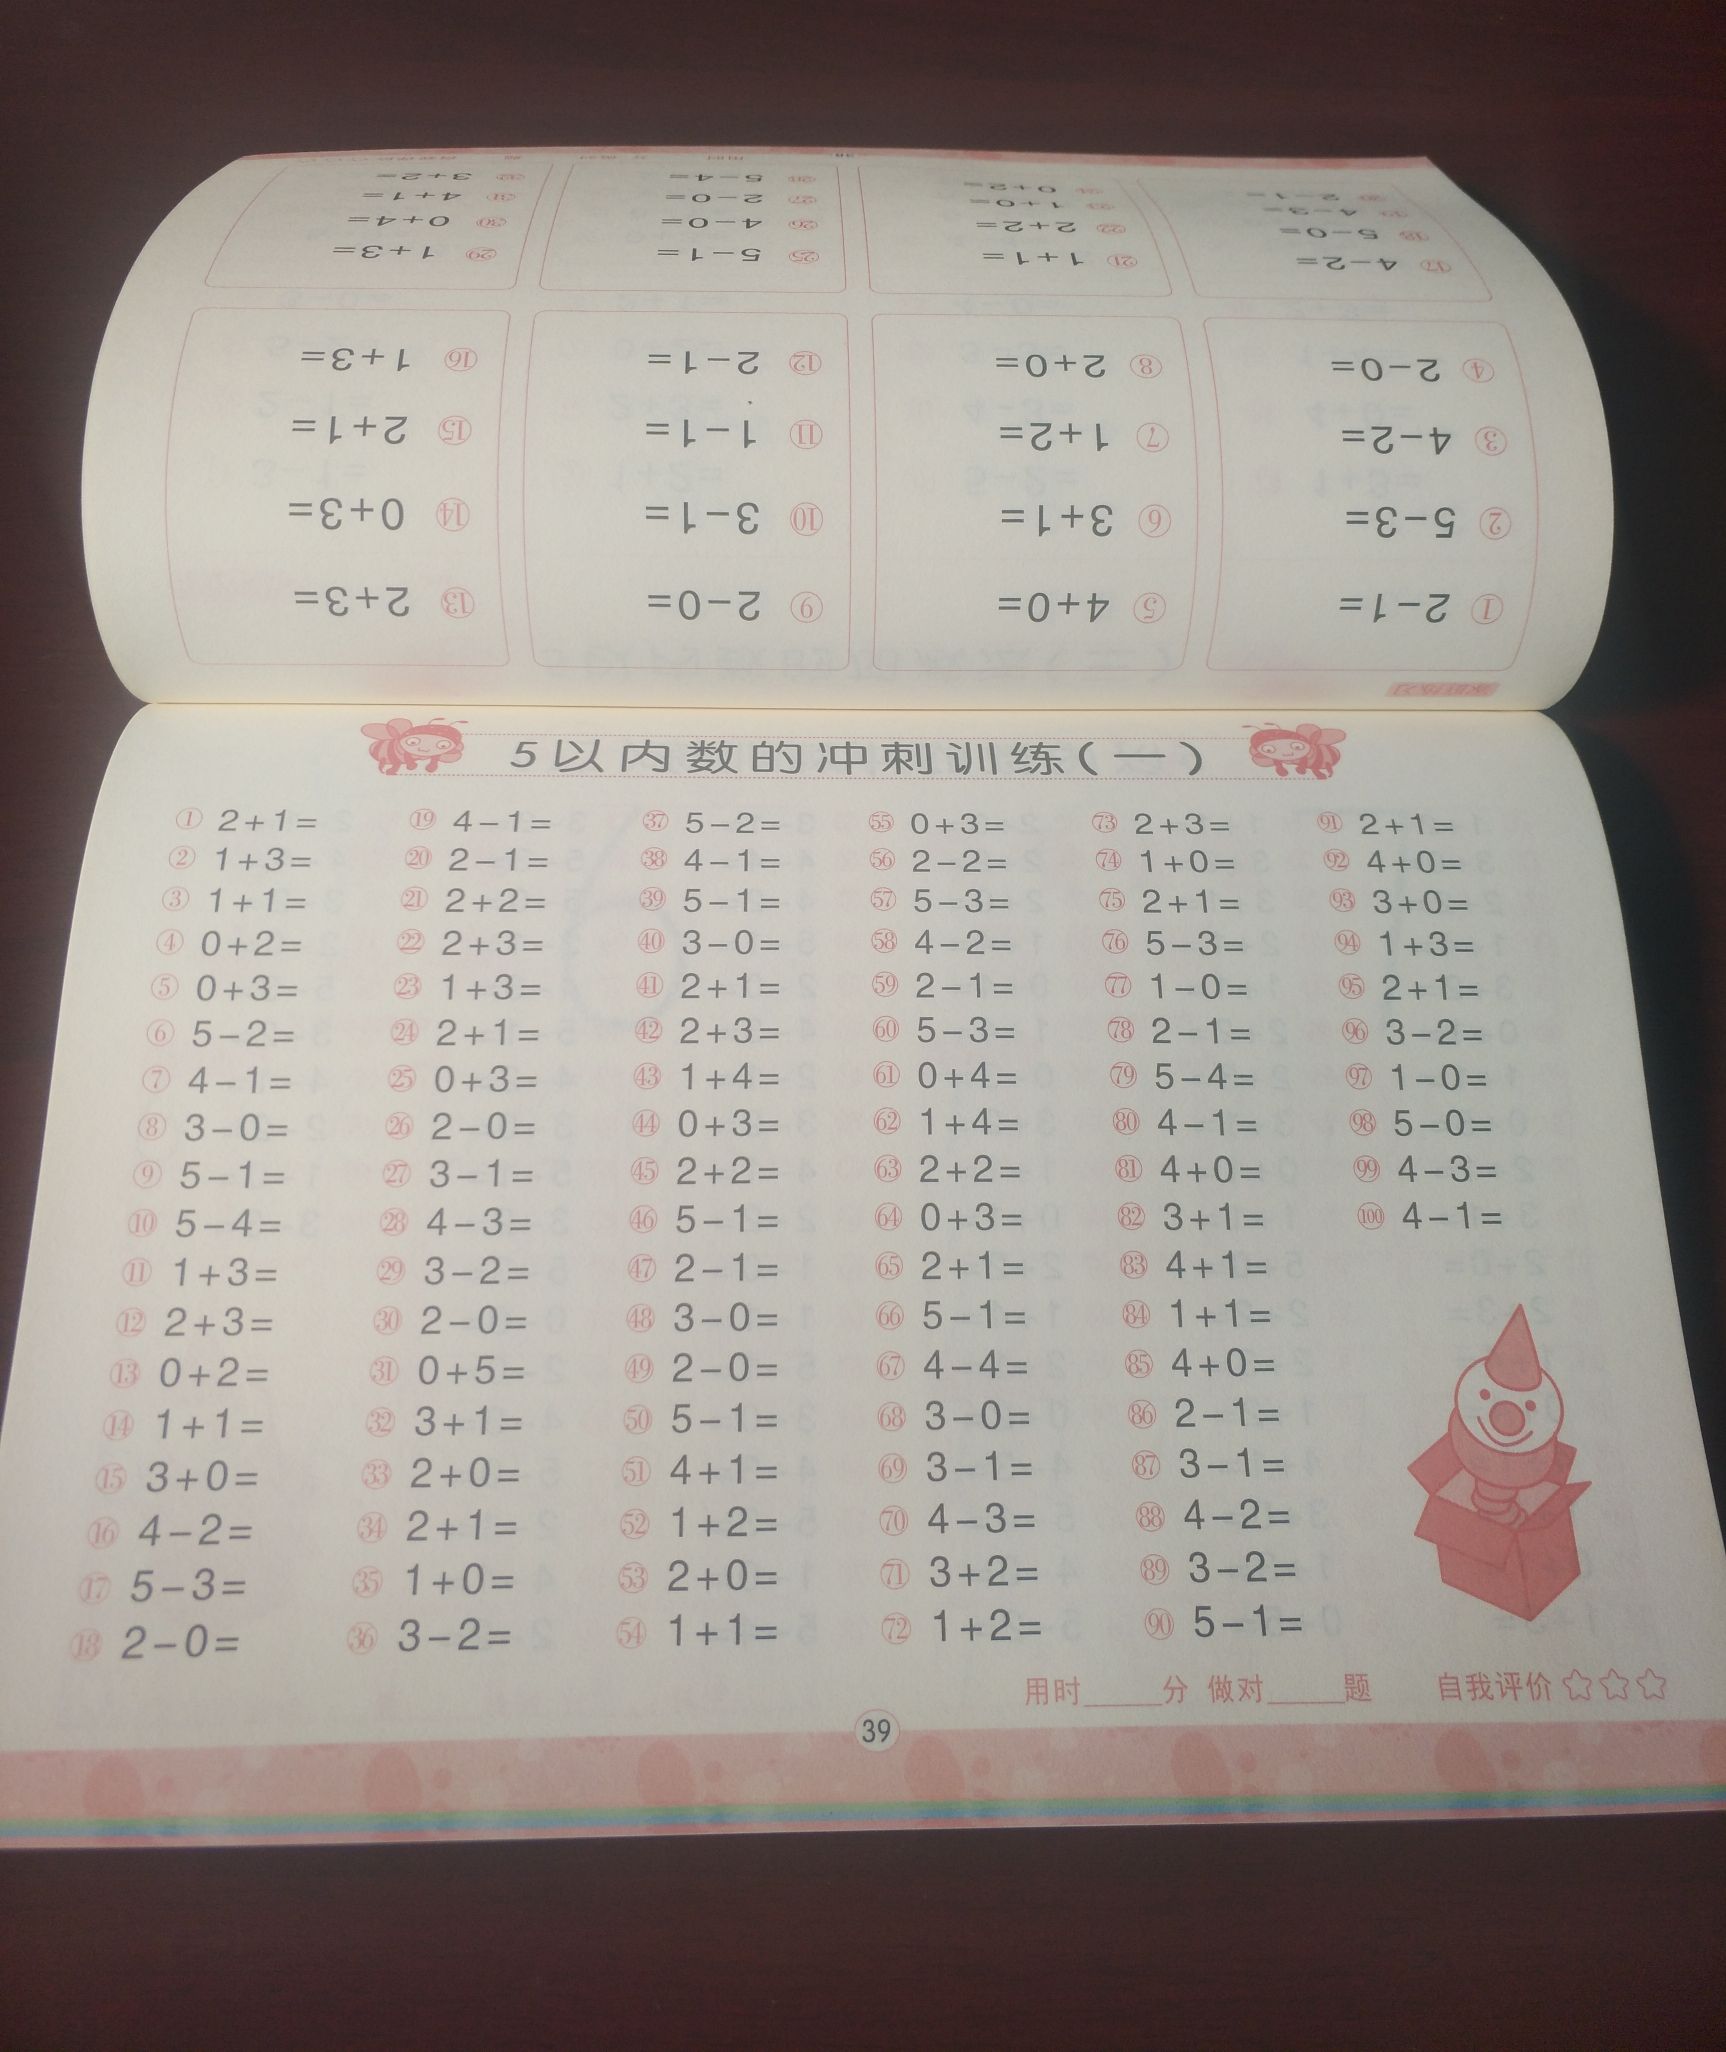 ① 2-1= ⑤ 4+0= ⑨ 2-0= ⑬ 2+3=
② 5-3= ⑥ 3+1= ⑩ 3-1= ⑭ 0+3=
③ 4-2= ⑦ 1+2= ⑪ 1-1= ⑮ 2+1=
④ 2-0= ⑧ 2+0= ⑫ 2-1= ⑯ 1+3=
⑰ 4-2= ㉑ 1+1= ㉕ 5-1= ㉙ 1+3=
⑱ 5-0= ㉒ 2+2= ㉖ 4-0= ㉚ 0+4=
⑲ 4-3= ㉓ 1+0= ㉗ 2-0= ㉛ 4+1=
⑳ 2-1= ㉔ 0+2= ㉘ 5-4= ㉜ 3+2=
5以内数的冲刺训练(一)
① 2+1= ⑲ 4-1= ㊲ 5-2= 55 0+3= 73 2+3= 91 2+1=
② 1+3= ⑳ 2-1= ㊳ 4-1= 56 2-2= 74 1+0= 92 4+0=
③ 1+1= ㉑ 2+2= ㊴ 5-1= 57 5-3= 75 2+1= 93 3+0=
④ 0+2= ㉒ 2+3= ㊵ 3-0= 58 4-2= 76 5-3= 94 1+3=
⑤ 0+3= ㉓ 1+3= ㊶ 2+1= 59 2-1= 77 1-0= 95 2+1=
⑥ 5-2= ㉔ 2+1= ㊷ 2+3= 60 5-3= 78 2-1= 96 3-2=
⑦ 4-1= ㉕ 0+3= ㊸ 1+4= 61 0+4= 79 5-4= 97 1-0=
⑧ 3-0= ㉖ 2-0= ㊹ 0+3= 62 1+4= 80 4-1= 98 5-0=
⑨ 5-1= ㉗ 3-1= ㊺ 2+2= 63 2+2= 81 4+0= 99 4-3=
⑩ 5-4= ㉘ 4-3= ㊻ 5-1= 64 0+3= 82 3+1= 100 4-1=
⑪ 1+3= ㉙ 3-2= ㊼ 2-1= 65 2+1= 83 4+1=
⑫ 2+3= ㉚ 2-0= ㊽ 3-0= 66 5-1= 84 1+1=
⑬ 0+2= ㉛ 0+5= ㊾ 2-0= 67 4-4= 85 4+0=
⑭ 1+1= ㉜ 3+1= ㊿ 5-1= 68 3-0= 86 2-1=
⑮ 3+0= ㉝ 2+0= 51 4+1= 69 3-1= 87 3-1=
⑯ 4-2= ㉞ 2+1= 52 1+2= 70 4-3= 88 4-2=
⑰ 5-3= ㉟ 1+0= 53 2+0= 71 3+2= 89 3-2=
⑱ 2-0= ㊱ 3-2= 54 1+1= 72 1+2= 90 5-1=
用时____分 做对____题 自我评价☆☆☆
39